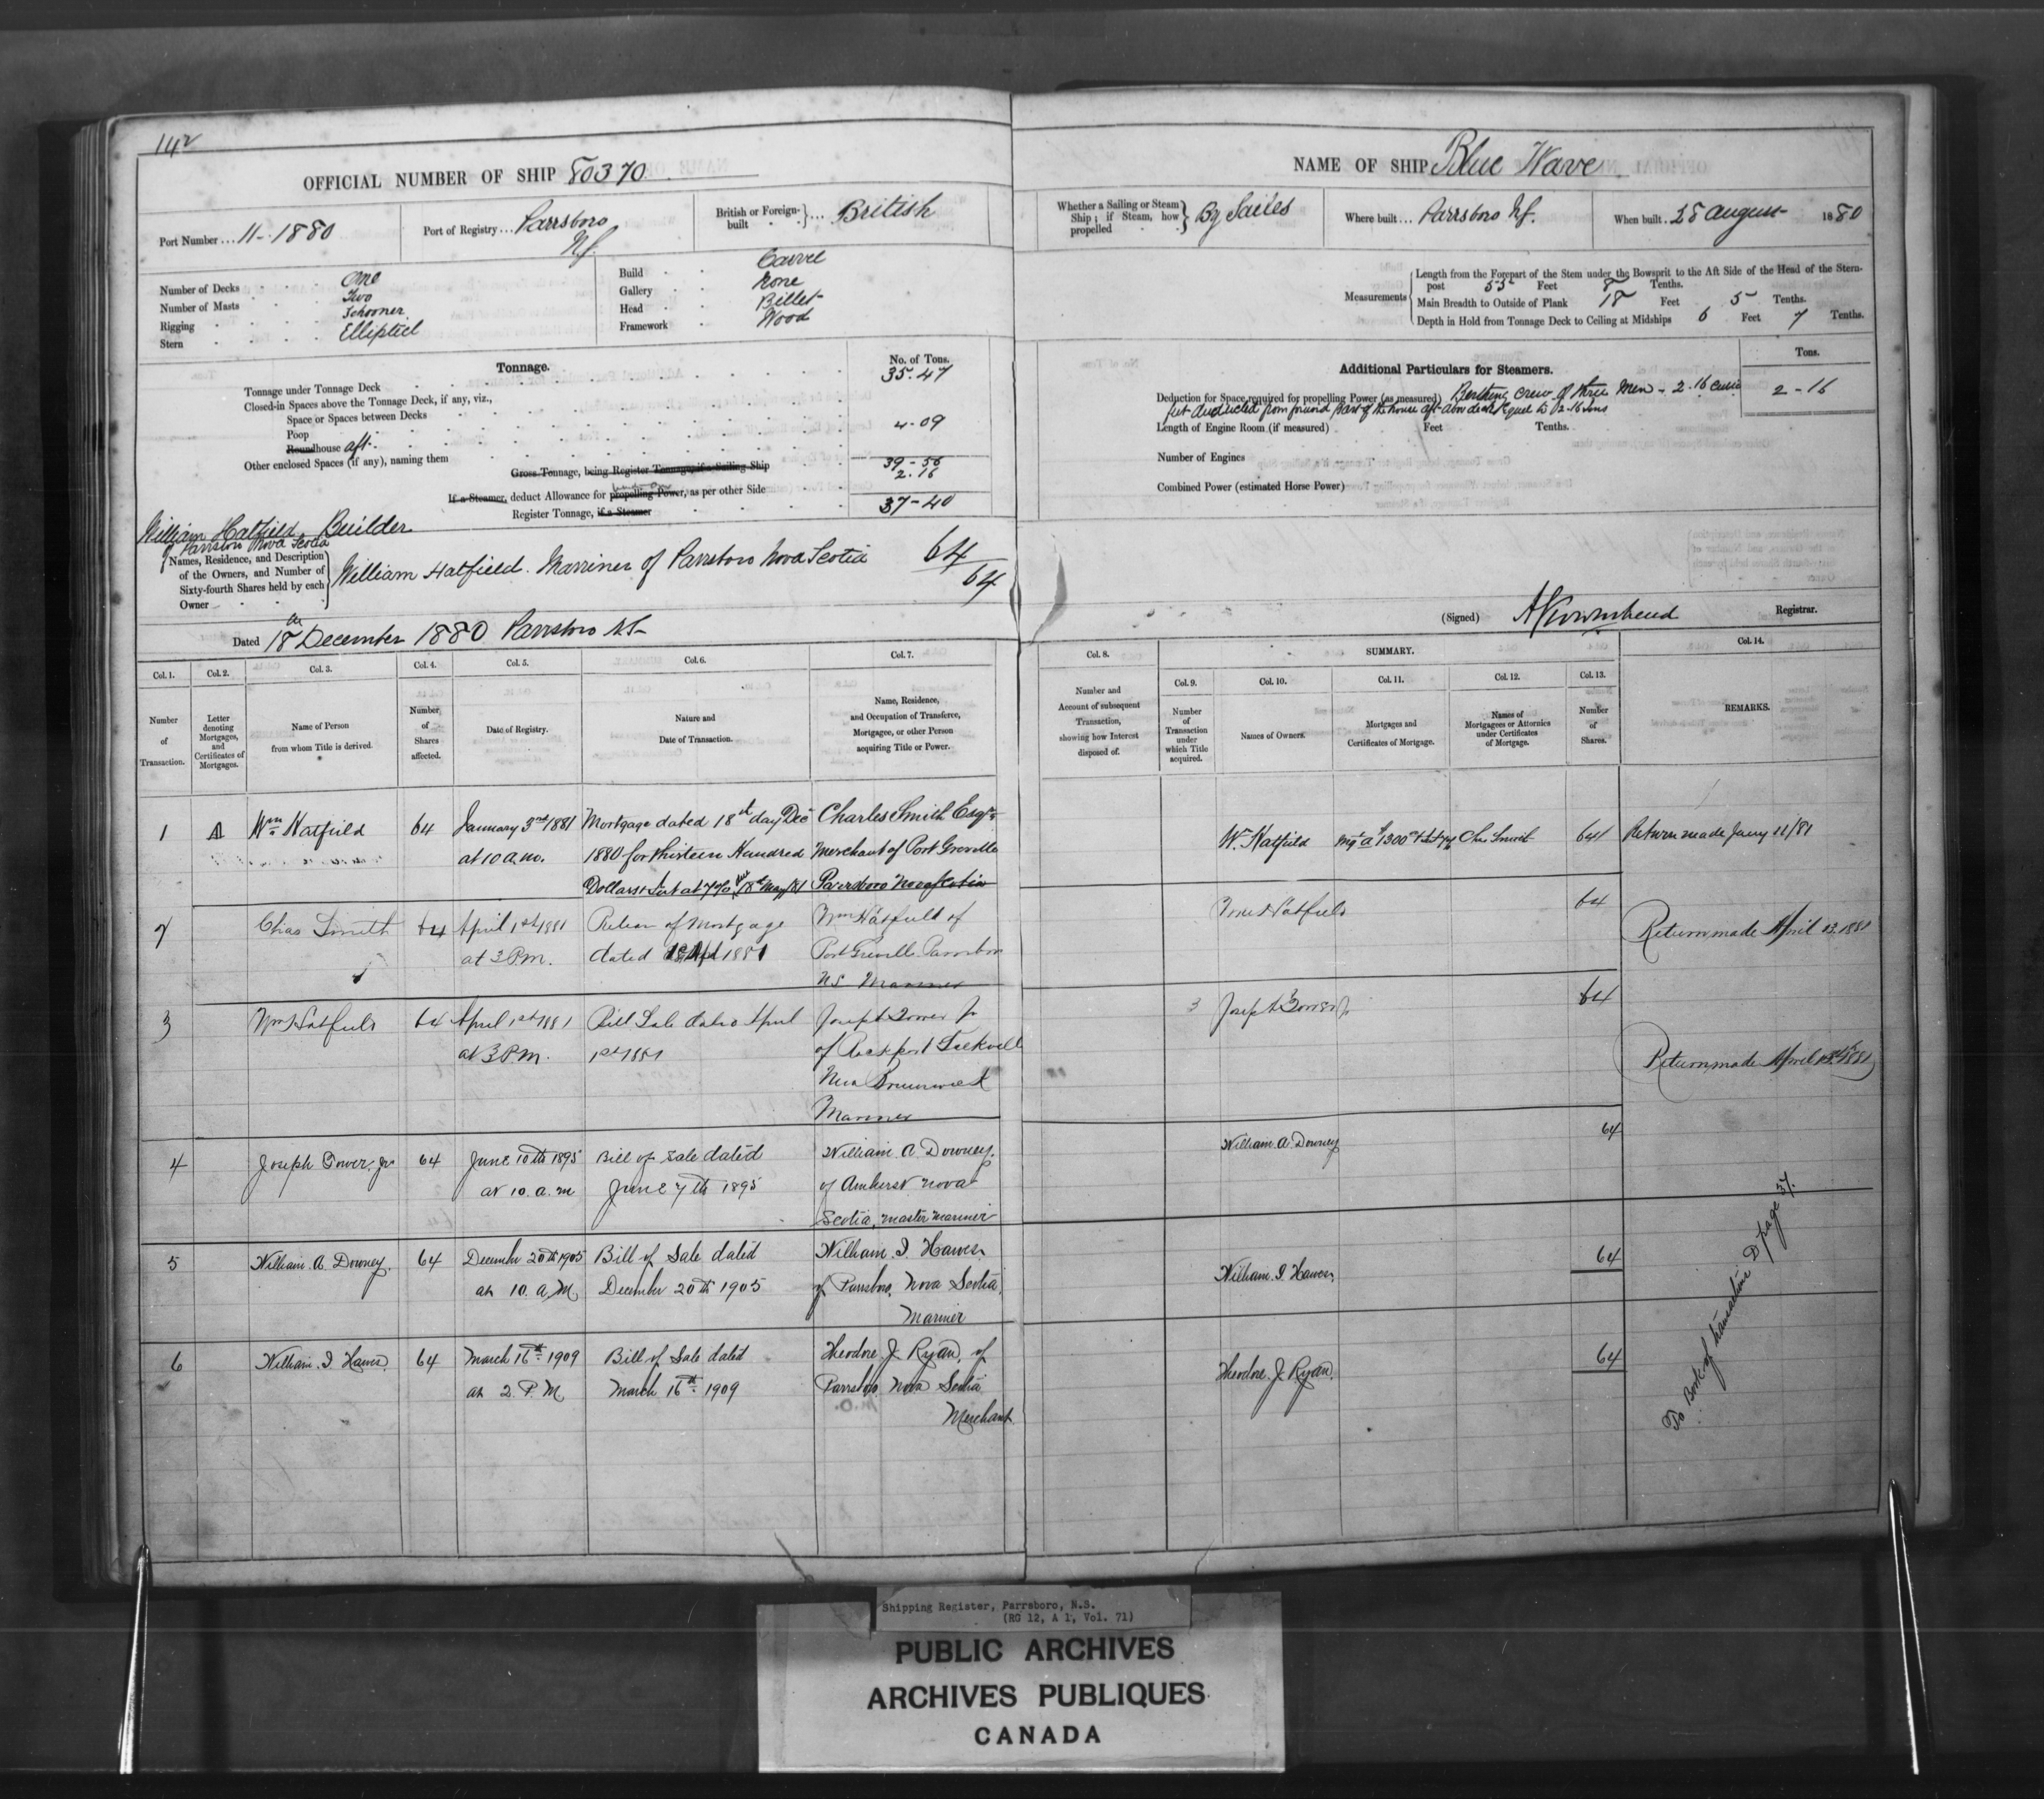 142
OFFICIAL NUMBER OF SHIP 80370
Port Number ... 11-1880
Port of Registry ... Parrsboro
N.S.
British or Foreign-built } ... British
Number of Decks One
Number of Masts Two
Rigging Schooner
Stern Elliptical
Build Carvel
Gallery None
Head Billet
Framework Wood
Tonnage.
No. of Tons.
Tonnage under Tonnage Deck 35.47
Closed-in Spaces above the Tonnage Deck, if any, viz.,
Space or Spaces between Decks
Poop 4.09
Roundhouse aft
Other enclosed Spaces (if any), naming them
Gross Tonnage, being Register Tonnage if a Sailing Ship 39-56
If a Steamer, deduct Allowance for propelling Power, as per other Side 2.16
Register Tonnage, if a Steamer 37-40
William Hatfield Builder
of Parrsboro Nova Scotia
Names, Residence, and Description of the Owners, and Number of Sixty-fourth Shares held by each Owner
William Hatfield. Marriner of Parrsboro Nova Scotia 64/64
Dated 18 December 1880 Parrsboro N.S.
NAME OF SHIP Blue Wave
Whether a Sailing or Steam Ship; if Steam, how propelled } By Sailes
Where built ... Parrsboro N.S.
When built . 28 August 1880
Measurements
Length from the Forepart of the Stem under the Bowsprit to the Aft Side of the Head of the Stern-
post 55 Feet 8 Tenths.
Main Breadth to Outside of Plank 18 Feet 5 Tenths.
Depth in Hold from Tonnage Deck to Ceiling at Midships 6 Feet 7 Tenths.
Additional Particulars for Steamers.
Tons.
Deduction for Space required for propelling Power (as measured) Berthing crew of three Men - 2.16 Cubic 2-16
feet deducted from part of the house aft above deck Equal to 2.16 tons
Length of Engine Room (if measured) Feet Tenths.
Number of Engines
Combined Power (estimated Horse Power)
(Signed) Townshend Registrar.
Col. 1.
Number of Transaction.
Col. 2.
Letter denoting Mortgages, and Certificates of Mortgages.
Col. 3.
Name of Person from whom Title is derived.
Col. 4.
Number of Shares affected.
Col. 5.
Date of Registry.
Col. 6.
Nature and Date of Transaction.
Col. 7.
Name, Residence, and Occupation of Transferee, Mortgagee, or other Person acquiring Title or Power.
Col. 8.
Number and Account of subsequent Transaction, showing how Interest disposed of.
SUMMARY.
Col. 9.
Number of Transaction under which Title acquired.
Col. 10.
Names of Owners.
Col. 11.
Mortgages and Certificates of Mortgage.
Col. 12.
Names of Mortgagees or Attornies under Certificates of Mortgage.
Col. 13.
Number of Shares.
Col. 14.
REMARKS.
1 A Wm Hatfield 64 January 3rd 1881 Mortgage dated 18st day Dec Charles Smith Esqr
at 10 a.m. 1880 for thirteen Hundred Merchant of Port Greville
Dollars & Int at 7% 18th May/81 Parrsboro Nova Scotia
Wm Hatfield Chs Smith 64 Return made Jany 11/81
2 Chas Smith 64 April 1st 1881 Release of Mortgage Wm Hatfield of
at 3 P.m. dated 1881 Port Greville Parrsboro
N.S. Mariner
Wm Hatfield 64
Return made April 13. 1881
3 Wm Hatfield 64 April 1st 1881 Bill Sale dated April Joseph Tower Jr
at 3 P.m. 1st 1881 of Rockport Sackville
New Brunswick
Mariner
3 Joseph Tower Jr 64
Return made April 1881
4 Joseph Tower, Jr 64 June 10th 1895 Bill of Sale dated William A Downey.
at 10. a.m June 7th 1895 of Amherst Nova
Scotia, master mariner
William A. Downey 64
5 William A. Downey. 64 December 20th 1905 Bill of Sale dated William I. Hawes
at 10. a.M December 20th 1905 of Parrsboro, Nova Scotia,
Mariner
William I. Hawes 64
6 William I Hawes. 64 March 16th 1909 Bill of Sale dated Theodore J. Ryan, of
at 2. P.M March 16th 1909 Parrsboro Nova Scotia
Merchant
Theodore J. Ryan. 64
To Book of transactions D page 37.
Shipping Register, Parrsboro, N.S.
(RG 12, A 1, Vol. 71)
PUBLIC ARCHIVES
ARCHIVES PUBLIQUES
CANADA